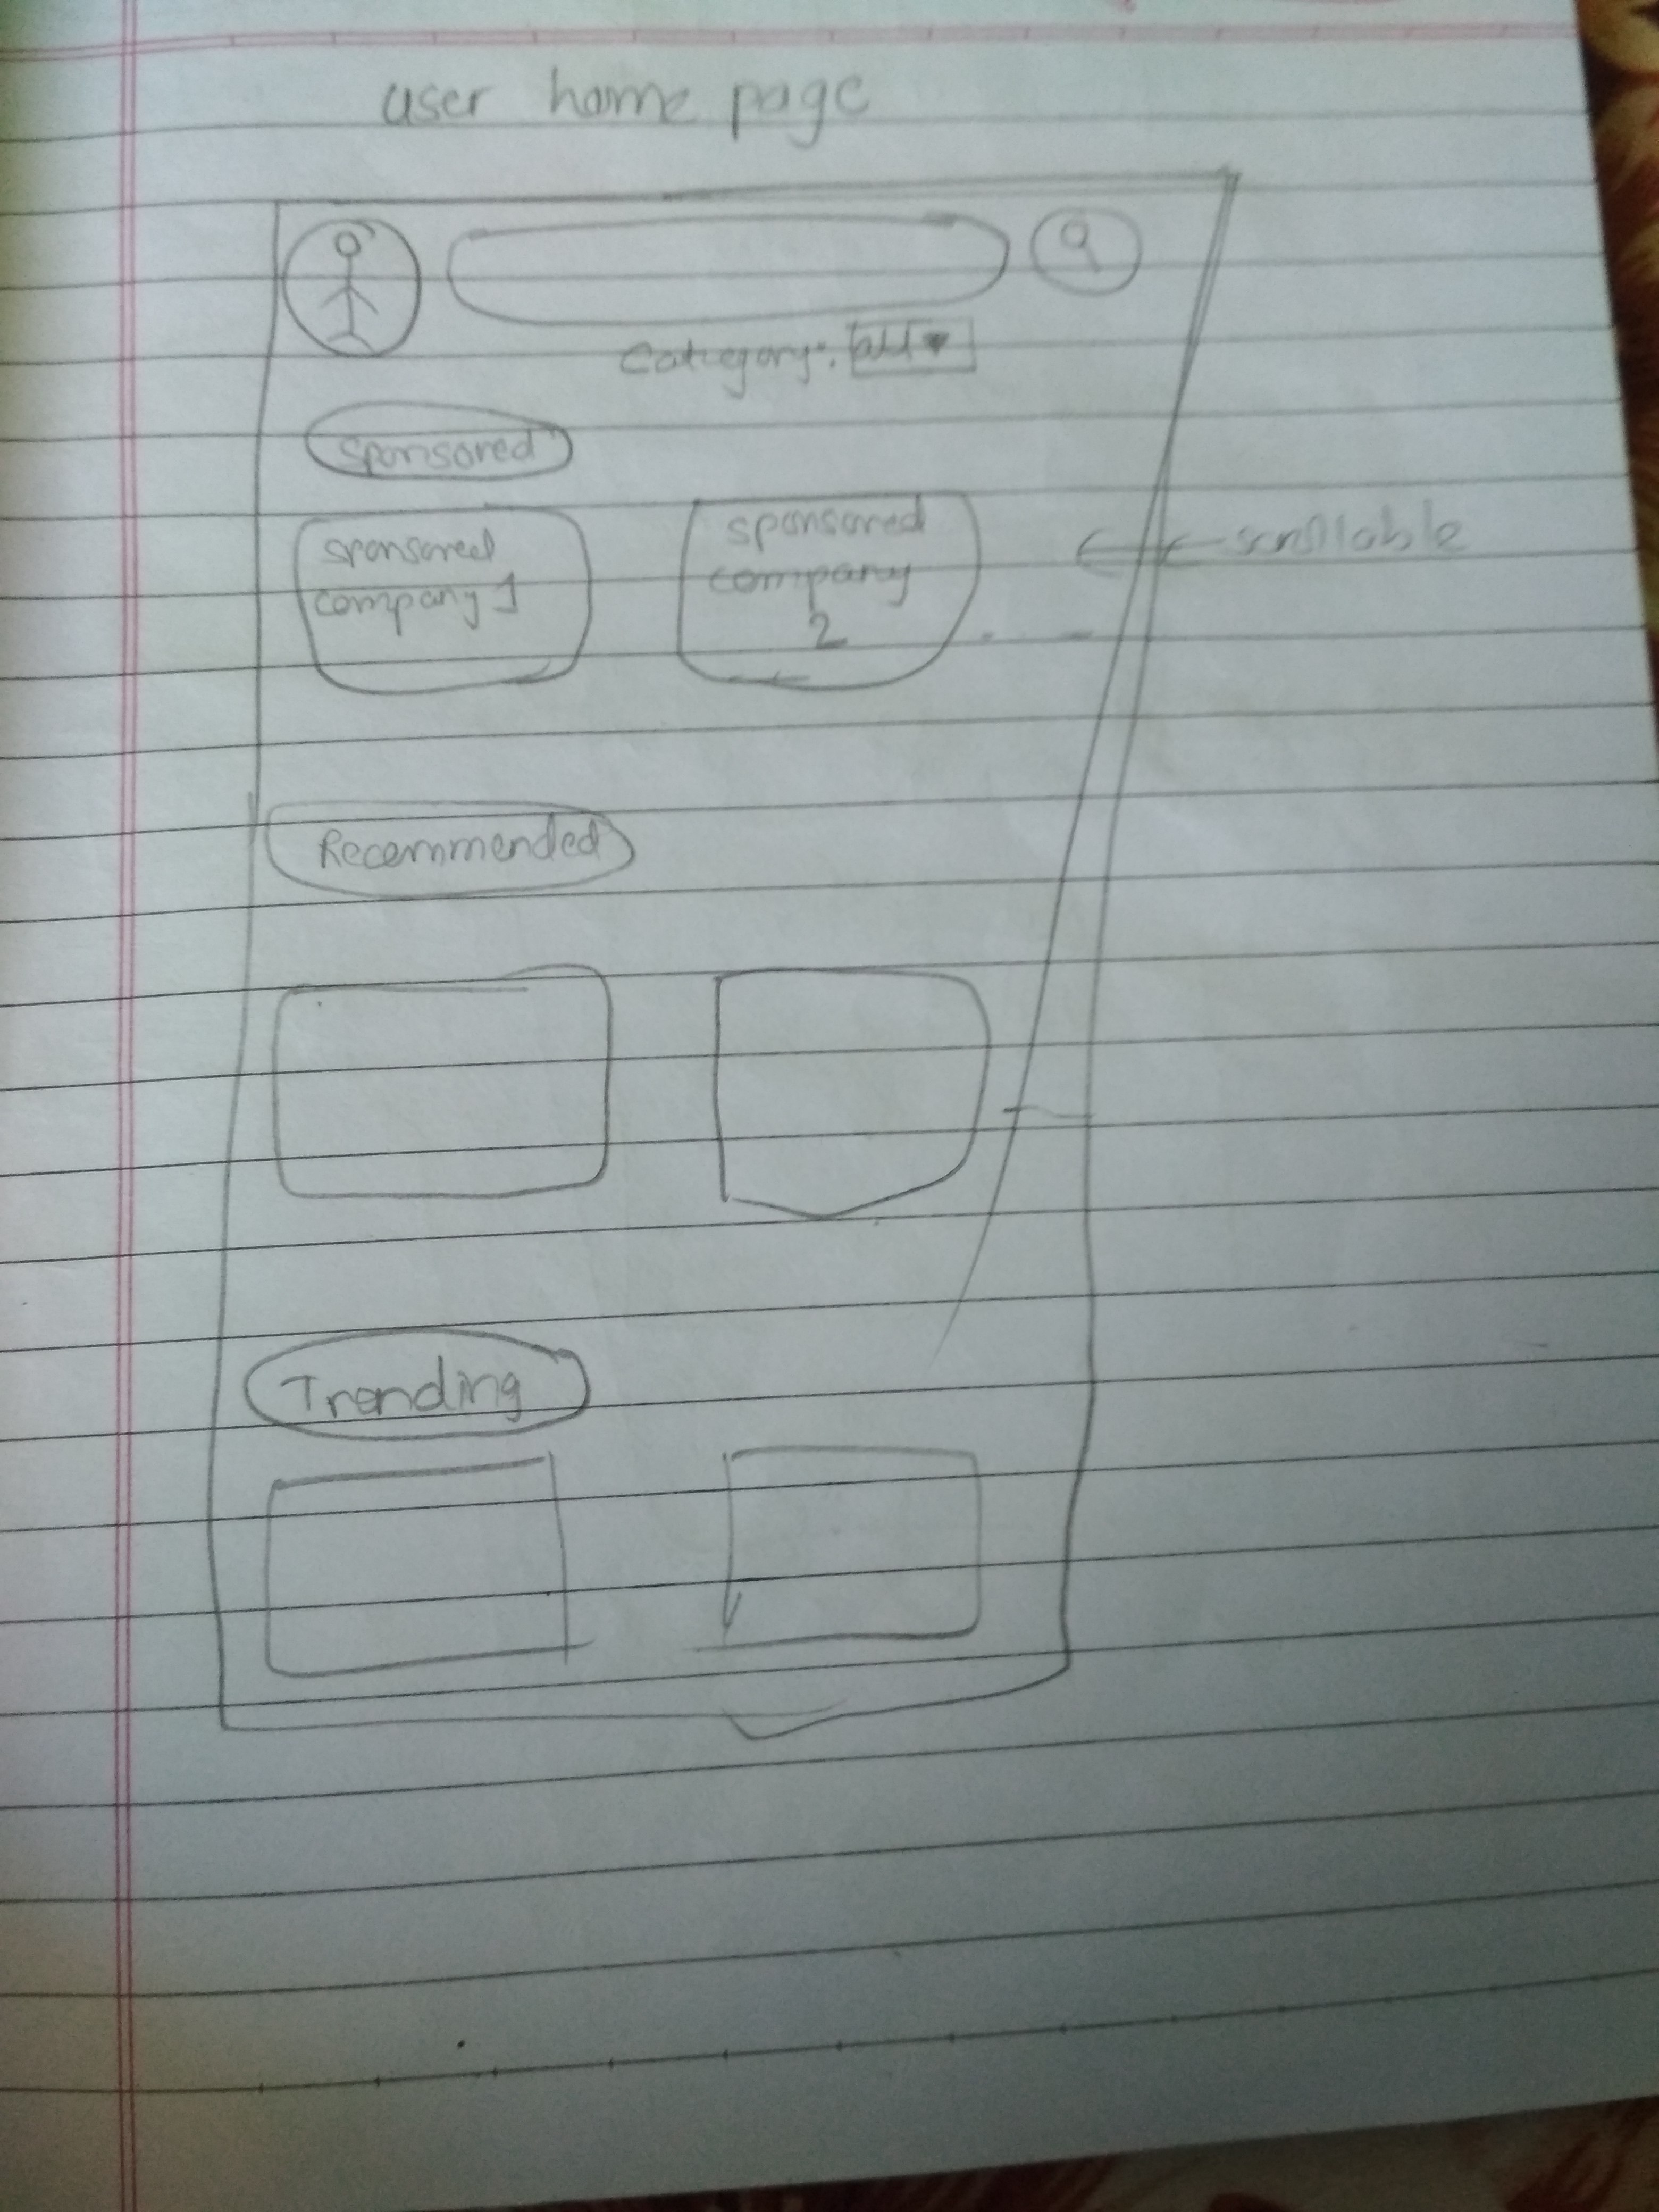 user home page
Category: all
sponsored
sponsored
company 1
sponsored
company
2
scrollable
Recommended
Trending